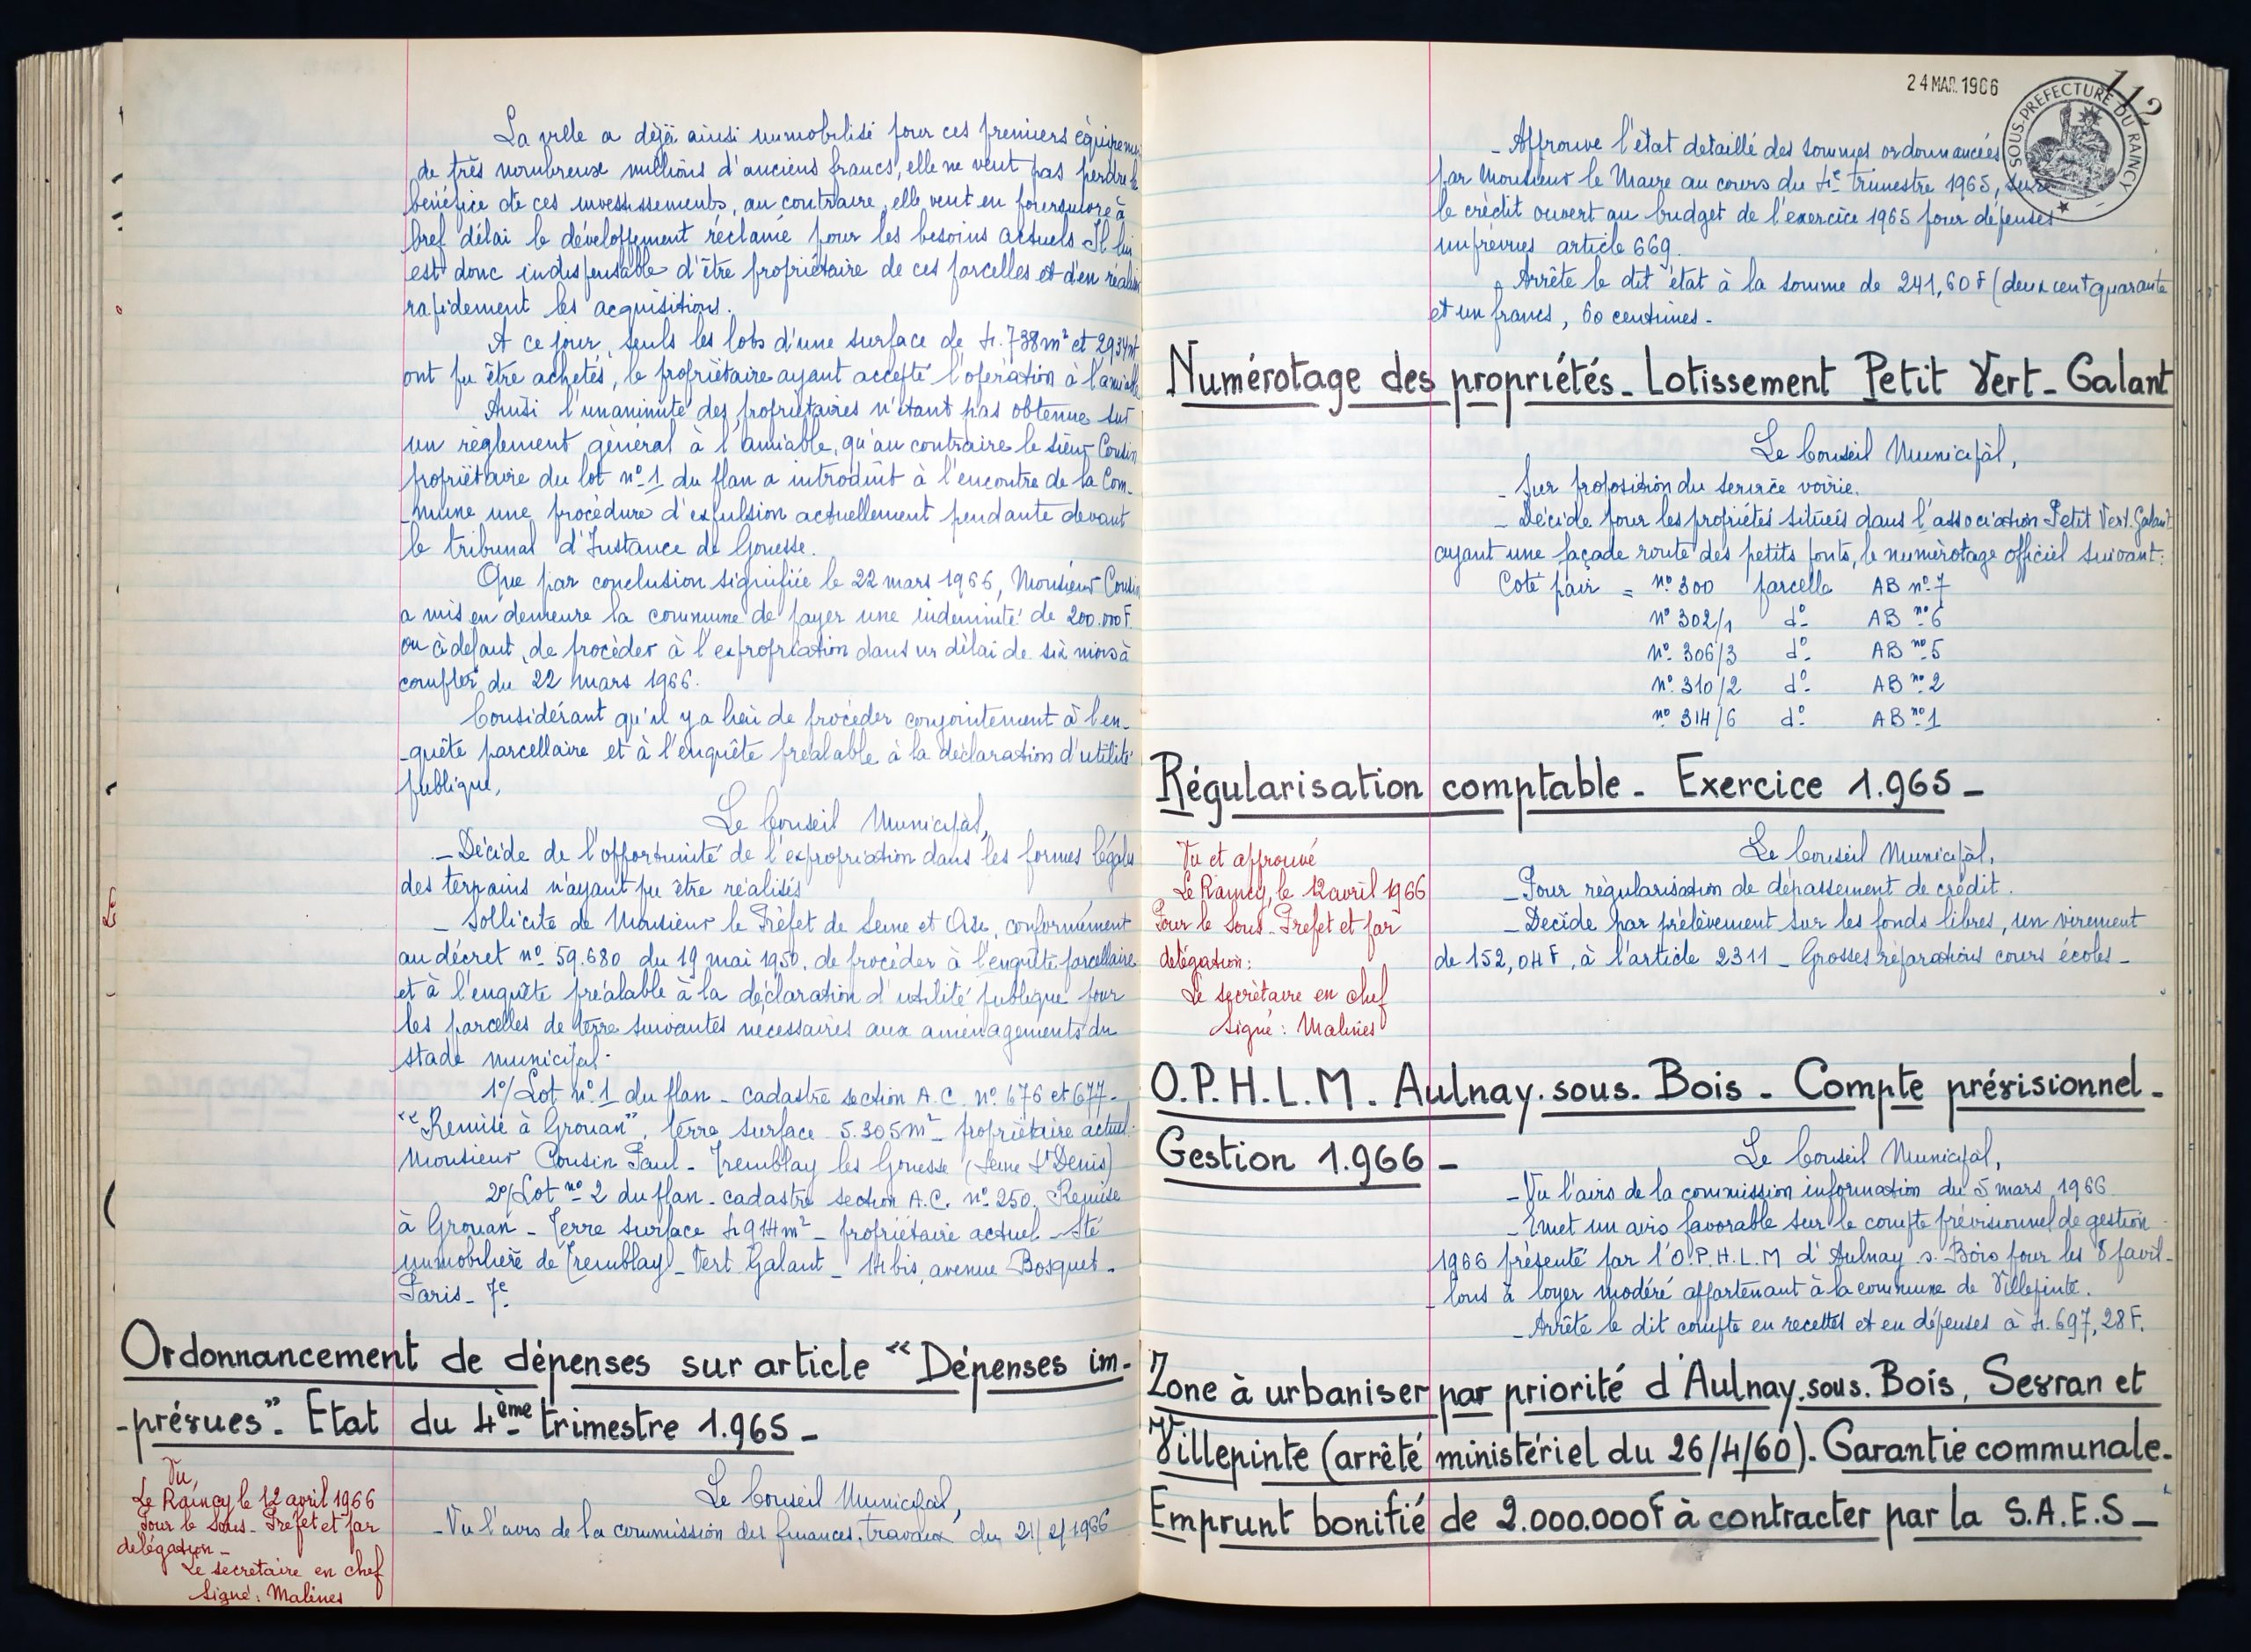 La ville a déjà ainsi immobilisé pour ces premiers équipem
de très nombreux millions d'anciens francs, elle ne veut pas perdre le
bénéfice de ces investissements, au contraire, elle veut en poursuivre à
bref délai le développement réclamé pour les besoins actuels Il lui
est donc indispensable d'être propriétaire de ces parcelles et d'en réalis
rapidement les acquisitions.
A ce jour, seuls les lots d'une surface de 4.738 m² et 2934 m²
ont pu être achetés, le propriétaire ayant accepté l'opération à l'amiable
Ainsi l'unanimité des propriétaires n'étant pas obtenue sur
un règlement général à l'amiable, qu'au contraire le sieur Cousin
propriétaire du lot n° 1 du plan a introduit à l'encontre de la Com-
-mune une procédure d'expulsion actuellement pendante devant
le tribunal d'Instance de Gonesse.
Que par conclusion signifiée le 22 mars 1966, Monsieur Cousin
a mis en demeure la commune de payer une indemnité de 200.000F.
ou à défaut, de procéder à l'expropriation dans un délai de six mois à
compter du 22 mars 1966.
Considérant qu'il y a lieu de procéder conjointement à l'en-
-quête parcellaire et à l'enquête préalable à la déclaration d'utilité
publique,
Le Conseil Municipal,
- Décide de l'opportunité de l'expropriation dans les formes légales
des terrains n'ayant pu être réalisés
- Sollicite de Monsieur le Préfet de Seine et Oise, conformément
au décret n° 59.680 du 19 mai 1950, de procéder à l'enquête parcellaire
et à l'enquête préalable à la déclaration d'utilité publique pour
les parcelles de terre suivantes nécessaires aux aménagements du
stade municipal.
1°/ Lot n° 1 du plan - cadastré section A.C. n° 676 et 677 -
"Remise à Grouan", terre surface 5.305 m² - propriétaire actuel.
Monsieur Cousin Paul - Tremblay les Gonesse (Seine St Denis)
2°/ Lot n° 2 du plan - cadastré section A.C. n° 250. Remise
à Grouan - Terre surface 4914 m² - propriétaire actuel - Sté
immobilière de Tremblay - Vert Galant - 14 bis, avenue Bosquet -
Paris - 7e
Ordonnancement de dépenses sur article "Dépenses im-
-prévues". Etat du 4ème trimestre 1.965 -
Vu,
Le Raincy le 12 avril 1966
Pour le Sous-Préfet et par
délégation -
Le secrétaire en chef
Signé : Malines
Le Conseil Municipal,
- Vu l'avis de la commission des finances, travaux du 21/2/1966
24 MAR. 1966
112
SOUS-PREFECTURE DU RAINCY
- Approuve l'état détaillé des sommes ordonnancées
par Monsieur le Maire au cours du 4e trimestre 1965, sur
le crédit ouvert au budget de l'exercice 1965 pour dépenses
imprévues article 669.
Arrête le dit état à la somme de 241,60 F (deux cent quarante
et un francs, 60 centimes -
Numérotage des propriétés - Lotissement Petit Vert - Galant
Le Conseil Municipal,
- Sur proposition du service voirie.
- Décide pour les propriétés situées dans l'association Petit Vert. Galant
ayant une façade route des petits ponts, le numérotage officiel suivant :
Coté pair = n° 300 parcelle AB n° 7
n° 302/1 d° AB n° 6
n° 306/3 d° AB n° 5
n° 310/2 d° AB n° 2
n° 314/6 d° AB n° 1
Régularisation comptable - Exercice 1.965 -
Vu et approuvé
Le Raincy, le 12 avril 1966
Pour le Sous-Prefet et par
délégation :
Le secrétaire en chef
Signé : Malines
Le Conseil Municipal,
- Pour régularisation de dépassement de crédit.
- Decide par prélèvement sur les fonds libres, un virement
de 152,04 F, à l'article 2311 - Grosses réparations cours écoles -
O.P.H.L.M. Aulnay.sous.Bois - Compte prévisionnel -
Gestion 1.966 -
Le Conseil Municipal,
- Vu l'avis de la commission information du 5 mars 1966
- Emet un avis favorable sur le compte prévisionnel de gestion
1966 présenté par l'O.P.H.L.M d'Aulnay s. Bois pour les 8 pavil-
- lons à loyer modéré appartenant à la commune de Villepinte.
- Arrête le dit compte en recettes et en dépenses à 4.697,28 F.
Zone à urbaniser par priorité d'Aulnay.sous.Bois, Sevran et
Villepinte (arrêté ministériel du 26/4/60). Garantie communale.
Emprunt bonifié de 2.000.000F à contracter par la S.A.E.S -